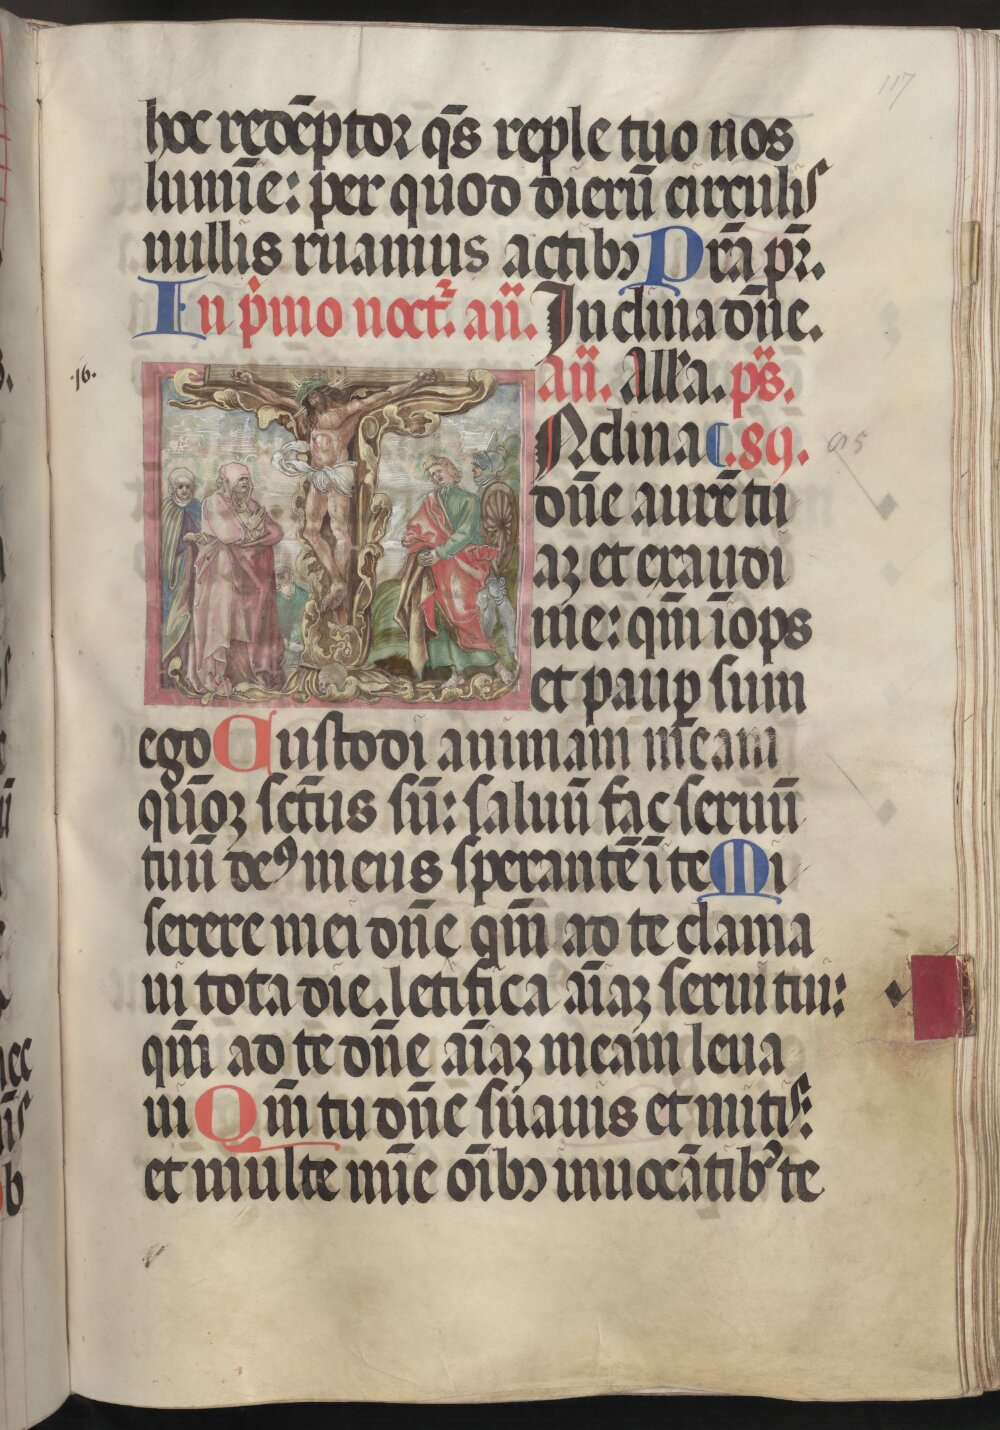 117
hoc redēptor q̄s reple tuo nos
lumīe: per quod dierū circulis
nullis ruamus actibꝫ Prā pr̄.
In p̄mo noct. añ. Inclina dñe.
añ. Alla. ps̄.
·16·
Nclina .89.
dñe aurē tu
aꝫ et exaudi
me: qm̄ īops
et paup̱ sum
ego Custodi animam meam
qm̄oꝫ sctus sū: saluū fac seruū
tuū deꝰ meus sperantē ī te Mi
serere mei dñe qm̄ ad te clama
ui tota die. letifica aīaꝫ serui tui:
qm̄ ad te dñe aīaꝫ meam leua
ui Qm̄ tu dñe suauis et mitis:
et multe mīe oībꝫ inuocātibꝰ te